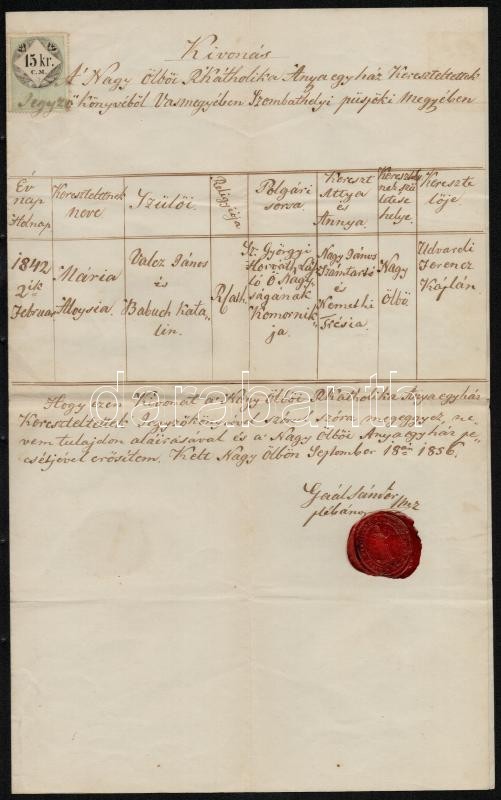 15 kr.
C.M.
Kivonás
A' Nagy Ölböi R. Kátholika Anyaegyház Kereszteltettek
Jegyző könyvéből Vasmegyében Szombathelyi püspöki Megyében
Év
nap
Holnap
Kereszteltetteknek
neve
Szülői
Religyiója
Polgári
sorsa
Kereszt
Attya
és
Annya
helye
Kereszte
lője
1842
2ik
Februar
Mária
Aloysia.
Valcz János
és
Babuch Kata-
lin.
R. Cath.
Sz. Györgyi
Horváth
Ő Nagy-
ságának
Komornik-
ja.
Nagy János
és
Nemethi
Nagy
Ölbő
Udvardi
Ferencz
Káplán.
Hogy ezen Kivonat a' Nagy Ölböi R. Kátholika Anyaegyház
Kereszteltettek Jegyzőkönyvével szóról szóra megegyez, ne-
vem tulajdon aláirásával és a Nagy Ölböi Anyaegyház pe-
csétjével erősítem. Kelt Nagy Ölbön September 18án 1856.
Gaál Sándor
plébános
darabanth.com